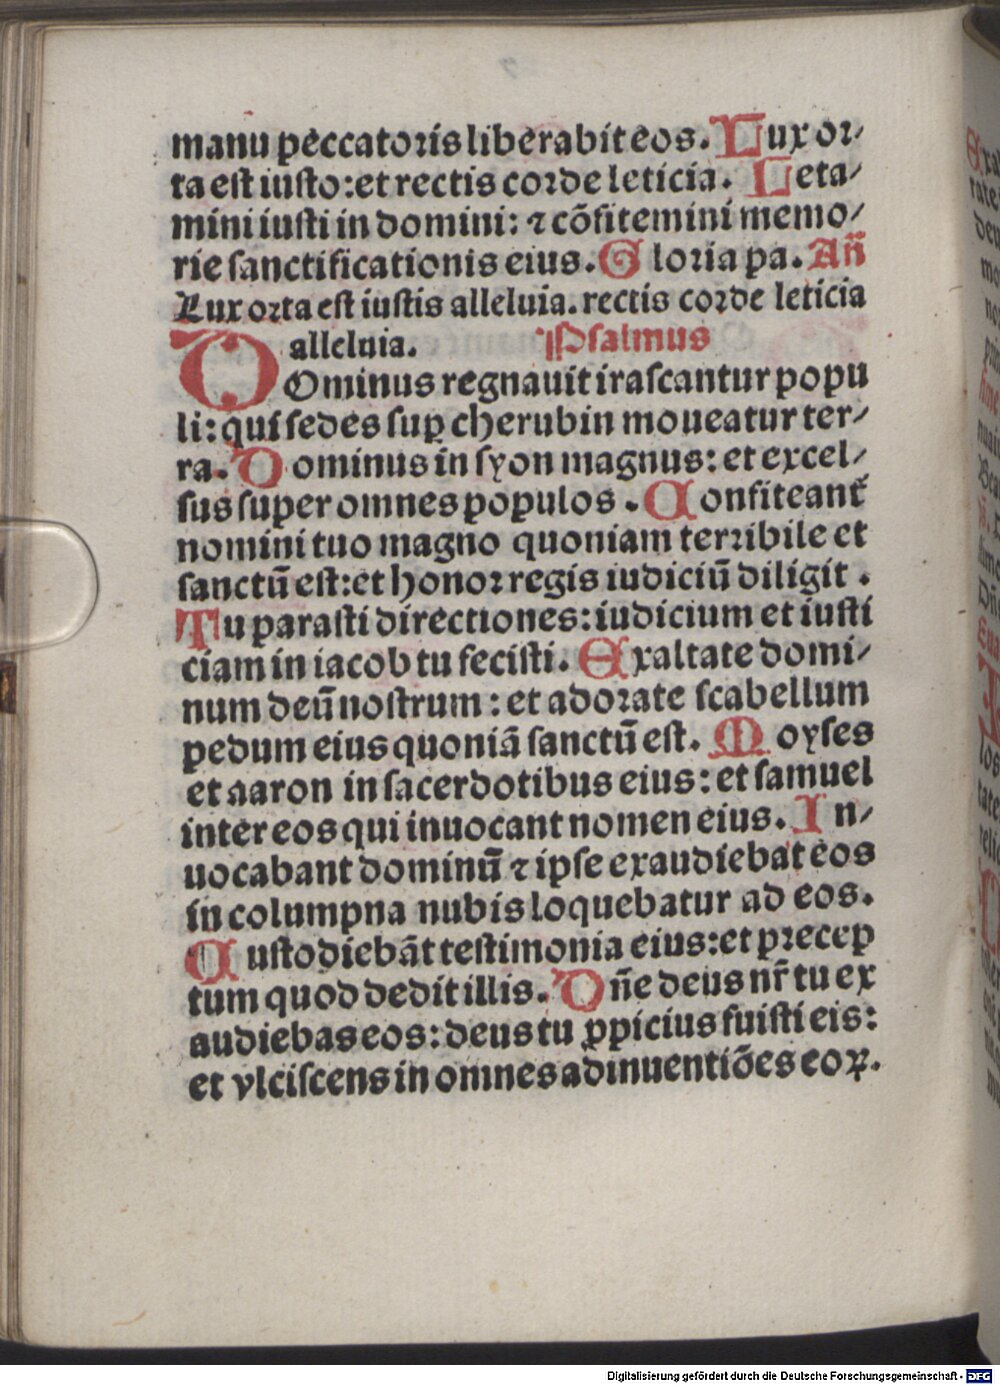 manu peccatoris liberabit eos. Lux or⸗
ta est iusto: et rectis corde leticia. Leta⸗
mini iusti in domini: ⁊ cōfitemini memo⸗
rie sanctificationis eius. Gloria pa. Añ
Lux orta est iustis alleluia. rectis corde leticia
alleluia. Psalmus
DOminus regnauit irascantur popu
li: qui sedes suꝑ cherubin moueatur ter⸗
ra. Dominus in syon magnus: et excel⸗
sus super omnes populos. Confiteant᷑
nomini tuo magno quoniam terribile et
sanctū est: et honor regis iudiciū diligit.
Tu parasti directiones: iudicium et iusti
ciam in iacob tu fecisti. Exaltate domi⸗
num deū nostrum: et adorate scabellum
pedum eius quoniā sanctū est. Moyses
et aaron in sacerdotibus eius: et samuel
inter eos qui inuocant nomen eius. In⸗
uocabant dominū ⁊ ipse exaudiebat eos
in columpna nubis loquebatur ad eos.
Custodiebāt testimonia eius: et precep
tum quod dedit illis. Dñe deus nr̄ tu ex
audiebas eos: deus tu ꝓpicius fuisti eis:
et vlciscens in omnes adinuentiōes eoꝝ.
Digitalisierung gefördert durch die Deutsche Forschungsgemeinschaft - DFG